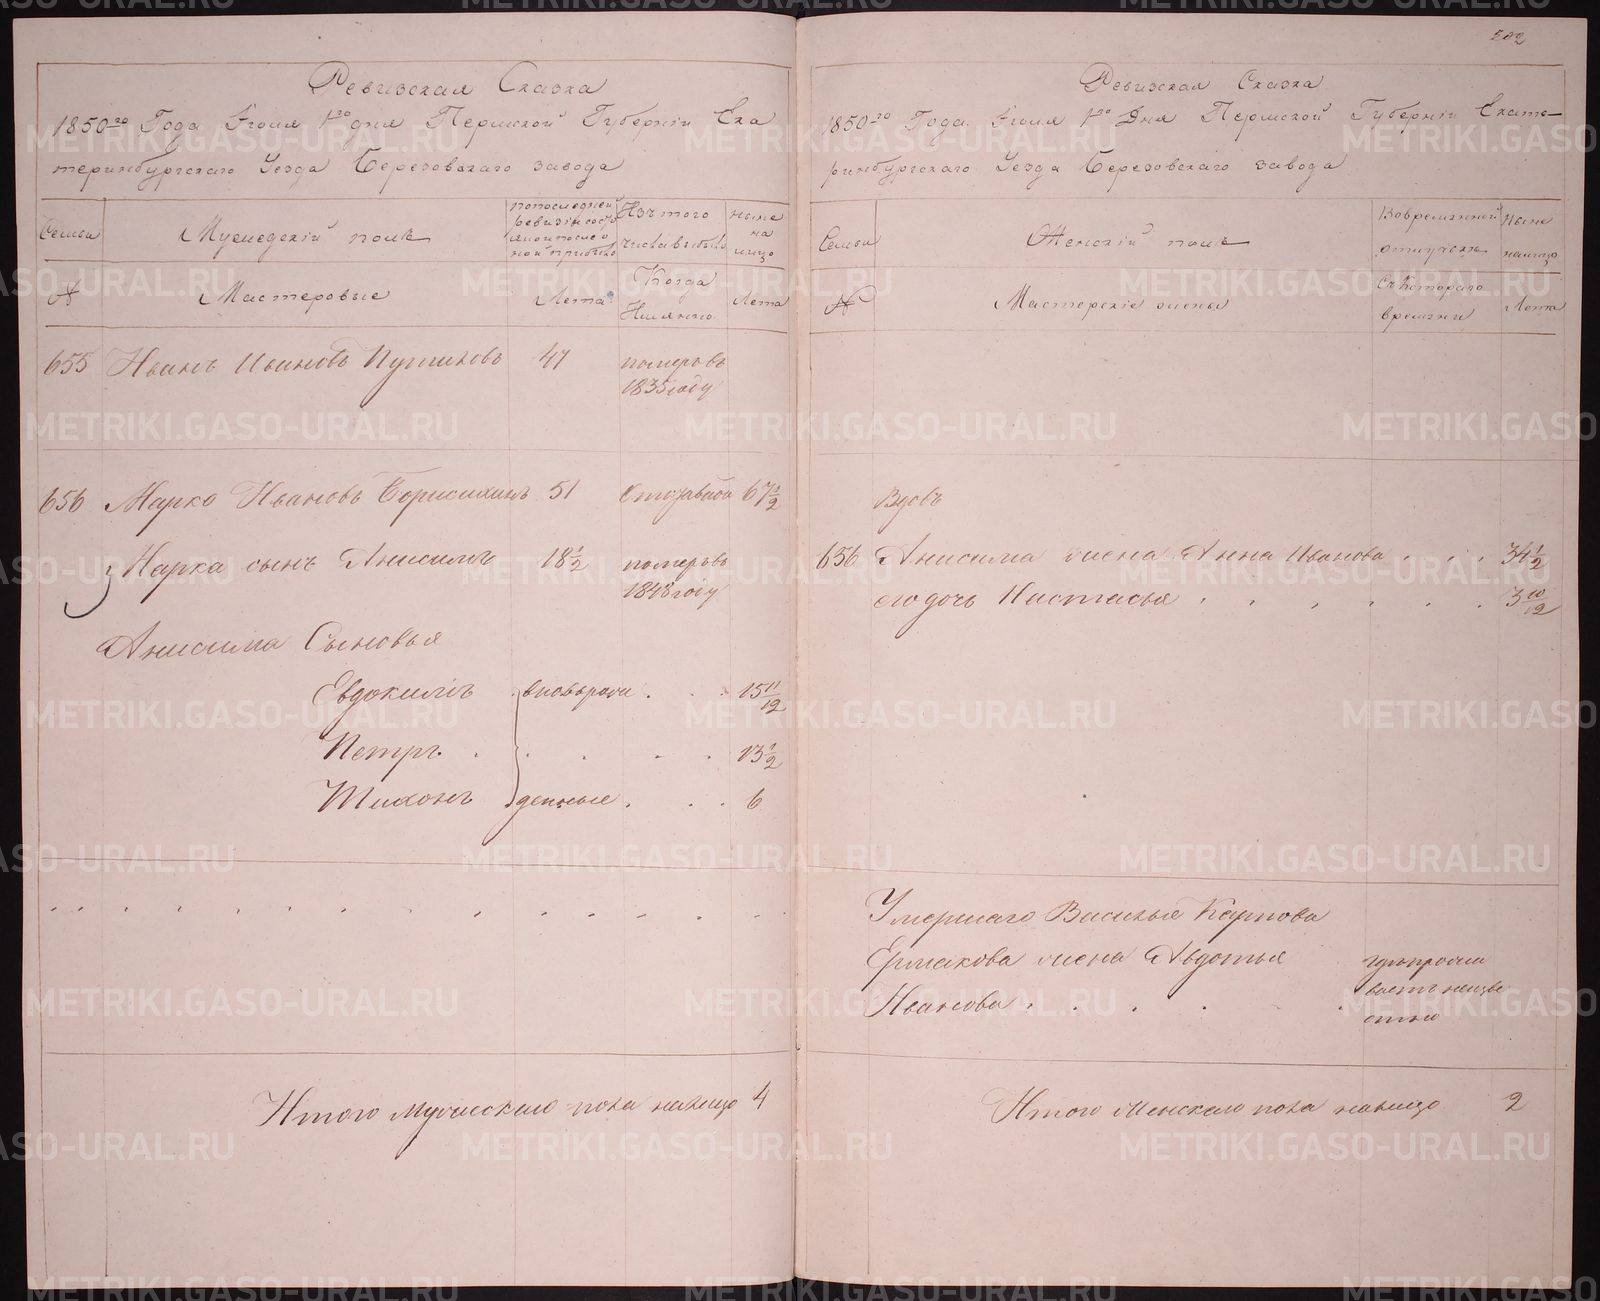 202
Ревизская Сказка
1850го Года Іюля 1го дня Пермской Губерніи Ека
теринбургскаго Уезда Березовскаго завода
Семьи
Мужедскій полъ
Изъ того
числа выбыло
ныне
на
лицо
№
Мастеровые
Лета
Когда
Имянно
Лета
655 Иванъ Ивановъ 47 померъ въ
1835 году
656 Марко Ивановъ 51 67 1/2
Марка сынъ Анисимъ 18 1/2 померъ въ
1848 году
Анисима Сыновья
Евдокимъ вновь рож . . . 15 11/12
Петръ . . . . . 13 1/2
Тихонъ денные . . . 6
Итого мужескаго пола налицо 4
Ревизская Сказка
1850го Года Іюля 1го Дня Пермской Губерніи Екате–
ринбургскаго Уезда Березовскаго завода
Семьи
Женскій полъ
Во временной
отлучкѣ
Ныне
налицо
№
Мастерскіе жены
Съ Котораго
времяни
Лета
Вдовъ
656 Анисима жена Анна Иванова . . . 34 1/2
его дочь Настасья . . . . . . 3 10/12
Умершаго Василья Карпова
Ермакова жена Авдотья
Иванова . . . . .
где прожи
ваетъ неизве
стно
Итого Женскаго пола налицо 2
METRIKI.GASO-URAL.RU